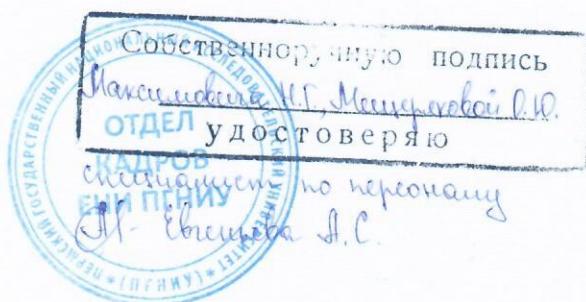 Собственноручную подпись
Максимовича Н.Г., Мещеряковой О.Ю.
удостоверяю
специалист по персоналу
А.С.
ПЕРМСКИЙ ГОСУДАРСТВЕННЫЙ НАЦИОНАЛЬНЫЙ ИССЛЕДОВАТЕЛЬСКИЙ УНИВЕРСИТЕТ * (ПГНИУ) *
ОТДЕЛ
КАДРОВ